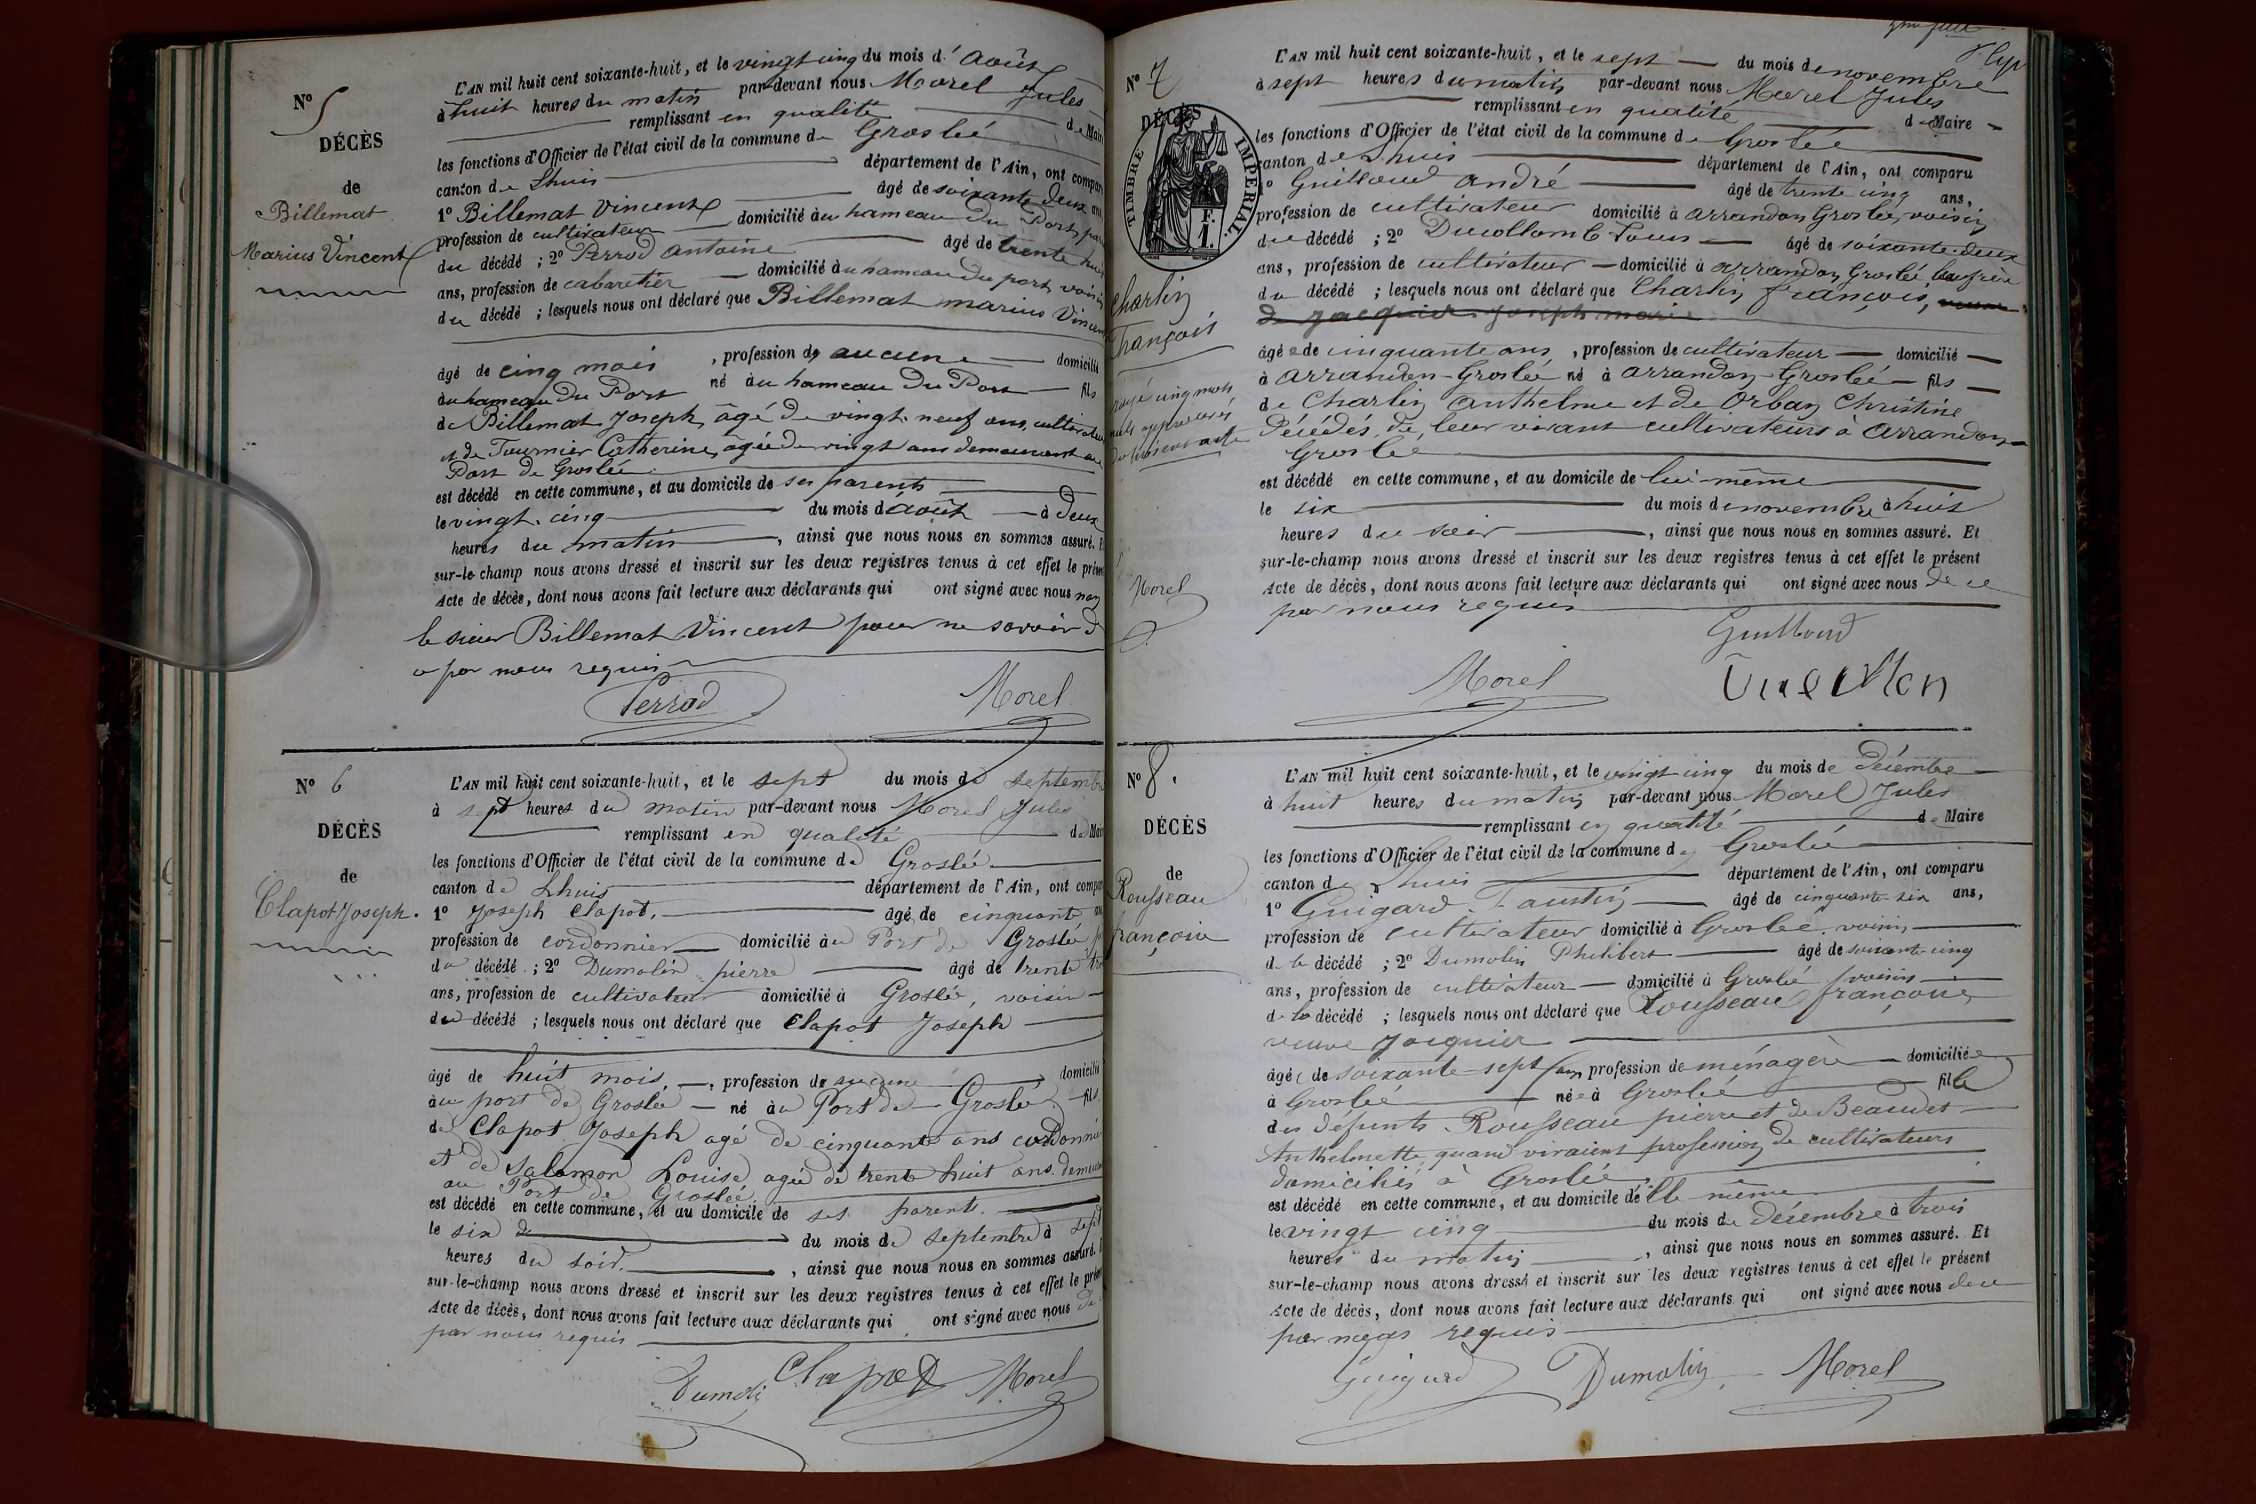 N° 5
DÉCÈS
de
Billemat
Marius Vincent
L'AN mil huit cent soixante-huit, et le vingt cinq du mois d'Août
à huit heures du matin par-devant nous Morel Jules
remplissant en qualité de Maire
les fonctions d'Officier de l'état civil de la commune de Groslée
canton de Lhuis département de l'Ain, ont comparu
1° Billemat Vincent âgé de soixante deux ans
profession de cultivateur domicilié au hameau du Port,
du décédé ; 2° Perrod Antoine âgé de trente huit
ans, profession de cabaretier domicilié au hameau du port, voisin
du décédé ; lesquels nous ont déclaré que Billemat marius Vincent
âgé de cinq mois, profession de aucune domicilié
au hameau du Port né au hameau du Port fils
de Billemat Joseph, âgé de vingt-neuf ans, cultivateur
et de Tournier Catherine, âgée de vingt ans demeurant au
Port de Groslée
est décédé en cette commune, et au domicile de ses parents
le vingt-cinq du mois d'août à deux
heures du matin, ainsi que nous nous en sommes assuré. Et
sur-le-champ nous avons dressé et inscrit sur les deux registres tenus à cet effet le présent
Acte de décès, dont nous avons fait lecture aux déclarants qui ont signé avec nous non
le sieur Billemat Vincent pour ne savoir d
e par nous requis
Perrod Morel
N° 6
DÉCÈS
de
Clapot Joseph.
L'AN mil huit cent soixante-huit, et le sept du mois de septembre
à sept heures du matin par-devant nous Morel Jules
remplissant en qualité de Maire
les fonctions d'Officier de l'état civil de la commune de Groslée
canton de Lhuis département de l'Ain, ont comparu
1° Joseph Clapot, âgé de cinquante ans
profession de cordonnier domicilié au Port de Groslée
du décédé ; 2° Dumolin pierre âgé de trente
ans, profession de cultivateur domicilié à Groslée, voisin
du décédé ; lesquels nous ont déclaré que Clapot Joseph
âgé de huit mois, profession de aucune domicilié
au port de Groslée né au Port de Groslée fils
de Clapot Joseph agé de cinquante ans cordonnier
et de Salomon Louise agée de trente huit ans demeurant
au Port de Groslée
est décédé en cette commune, et au domicile de ses parents.
le six du mois de septembre à sept
heures du soir, ainsi que nous nous en sommes assuré. Et
sur-le-champ nous avons dressé et inscrit sur les deux registres tenus à cet effet le présent
Acte de décès, dont nous avons fait lecture aux déclarants qui ont signé avec nous de
par nous requis
Dumoli Clapot Morel
N° 7
DÉCÈS
TIMBRE IMPÉRIAL.
F.
1.
Charlin
François
rayé cinq mots
nuls approuvés
du présent acte
Morel
L'AN mil huit cent soixante-huit, et le sept du mois de novembre
à sept heures du matin par-devant nous Morel Jules
remplissant en qualité de Maire
les fonctions d'Officier de l'état civil de la commune de Groslée
canton de Lhuis département de l'Ain, ont comparu
1° Guilloud André âgé de trente cinq ans,
profession de cultivateur domicilié à Arrandon Groslée, voisin
du décédé ; 2° Ducollomb Louis âgé de soixante-deux
ans, profession de cultivateur domicilié à Arrandon Groslée, beaufrère
du décédé ; lesquels nous ont déclaré que Charlin françois, veuve
de Jacquier Joseph marie
âgé de cinquante ans, profession de cultivateur domicilié
à Arrandon-Groslée né à Arrandon-Groslée fils
de Charlin Anthelme et de Orban Christine
Décédés, de leur vivant cultivateurs à Arrandon-
Groslée
est décédé en cette commune, et au domicile de lui-même
le six du mois de novembre à huit
heures du soir, ainsi que nous nous en sommes assuré. Et
sur-le-champ nous avons dressé et inscrit sur les deux registres tenus à cet effet le présent
Acte de décès, dont nous avons fait lecture aux déclarants qui ont signé avec nous de ce
par nous requis
Guilloud
Morel
N° 8.
DÉCÈS
de
Rousseau
françoise
L'AN mil huit cent soixante-huit, et le vingt cinq du mois de Décembre
à huit heures du matin par-devant nous Morel Jules
remplissant en qualité de Maire
les fonctions d'Officier de l'état civil de la commune de Groslée
canton de Lhuis département de l'Ain, ont comparu
1° Guigard Faustin âgé de cinquante-six ans,
profession de cultivateur domicilié à Groslée, voisin
de la décédé ; 2° Dumolin Philibert âgé de soixante-cinq
ans, profession de cultivateur domicilié à Groslée voisin
de la décédé ; lesquels nous ont déclaré que Rousseau françoise
veuve Jacquier
âgée de soixante-sept ans profession de ménagère domiciliée
à Groslée née à Groslée fille
des defunts Rousseau pierre et de Beaudet
Anthelmette, quand vivaient profession de cultivateurs
domiciliés à Groslée
est décédé en cette commune, et au domicile de elle même
le vingt cinq du mois de Décembre à trois
heures du matin, ainsi que nous nous en sommes assuré. Et
sur-le-champ nous avons dressé et inscrit sur les deux registres tenus à cet effet le présent
Acte de décès, dont nous avons fait lecture aux déclarants qui ont signé avec nous de ce
par nous requis
Guigard Dumolin Morel